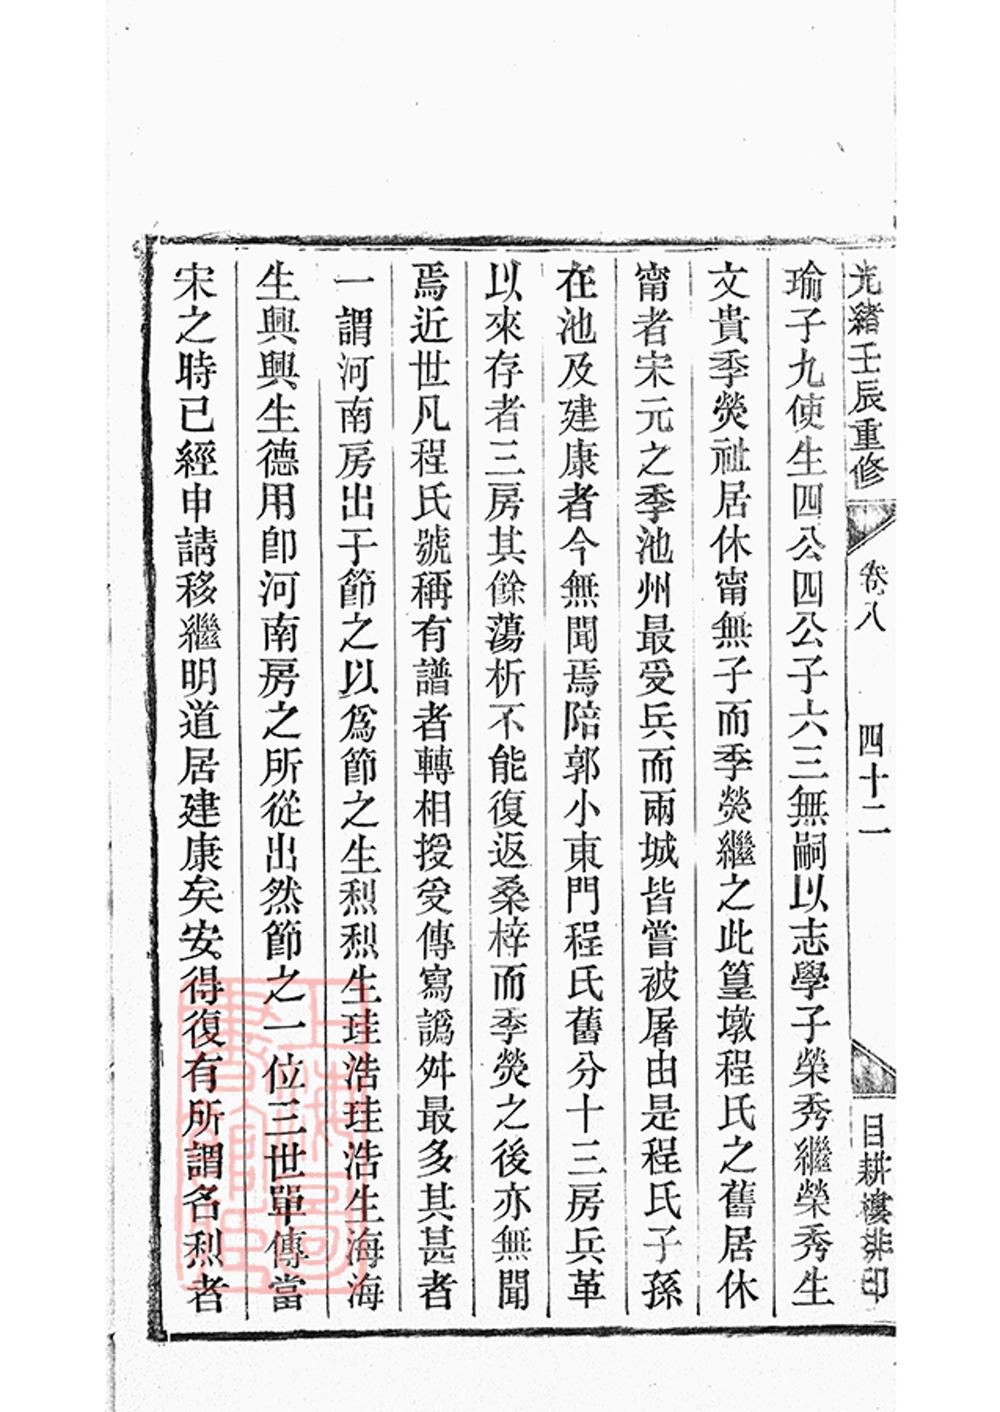 光緒壬辰重修
卷八
四十二
目耕樓排印
瑜子九使生四公四公子六三無嗣以志學子榮秀繼榮秀生
文貴季熒祉居休甯無子而季熒繼之此篁墩程氏之舊居休
甯者宋元之季池州最受兵而兩城皆嘗被屠由是程氏子孫
在池及建康者今無聞焉陪郭小東門程氏舊分十三房兵革
以來存者三房其餘蕩析不能復返桑梓而季熒之後亦無聞
焉近世凡程氏號稱有譜者轉相授受傳寫譌舛最多其甚者
一謂河南房出于節之以爲節之生烈烈生珪浩珪浩生海海
生興興生德用卽河南房之所從出然節之一位三世單傳當
宋之時已經申請移繼明道居建康矣安得復有所謂名烈者
上海圖書館藏